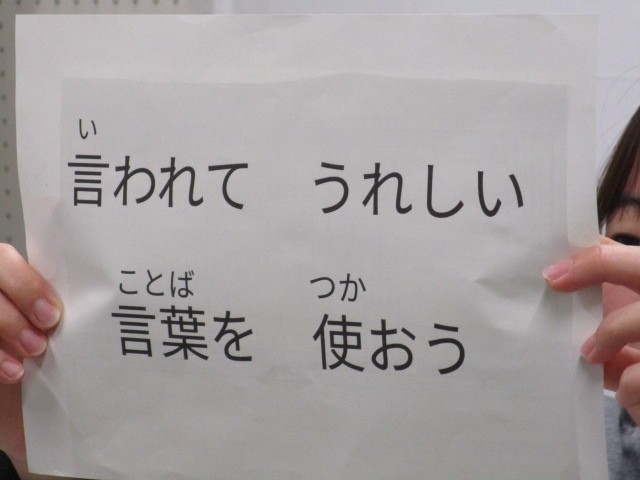 い
言われて うれしい
ことば つか
言葉を 使おう